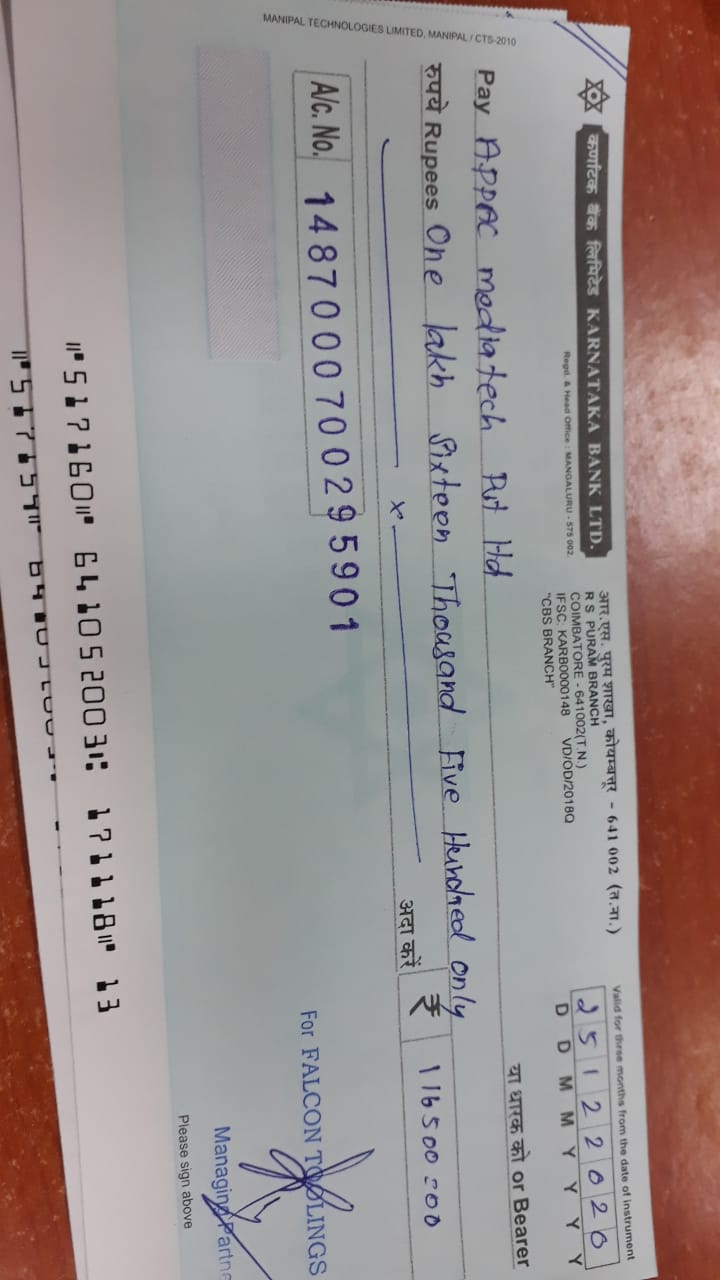 कर्णाटक बैंक लिमिटेड KARNATAKA BANK LTD.
Regd. & Head Office : MANGALURU - 575 002.
आर.एस. पुरम शाखा, कोयम्बत्तूर - 641 002 (त.ना.)
R S PURAM BRANCH
COIMBATORE - 641002(T.N.)
IFSC: KARB0000148 VD/OD/2018Q
"CBS BRANCH"
Valid for three months from the date of instrument
25122020
D D M M Y Y Y Y
Pay APPAC mediatech Pvt ltd
या धारक को or Bearer
रुपये Rupees One lakh Sixteen Thousand Five Hundred only
x
अदा करें ₹ 116500=00
A/c. No. 1487000700295901
For FALCON TOOLINGS
Managing Partne
Please sign above
MANIPAL TECHNOLOGIES LIMITED, MANIPAL / CTS-2010
⑈517160⑈ 641052003⑆ 171118⑈ 13
⑈517159⑈